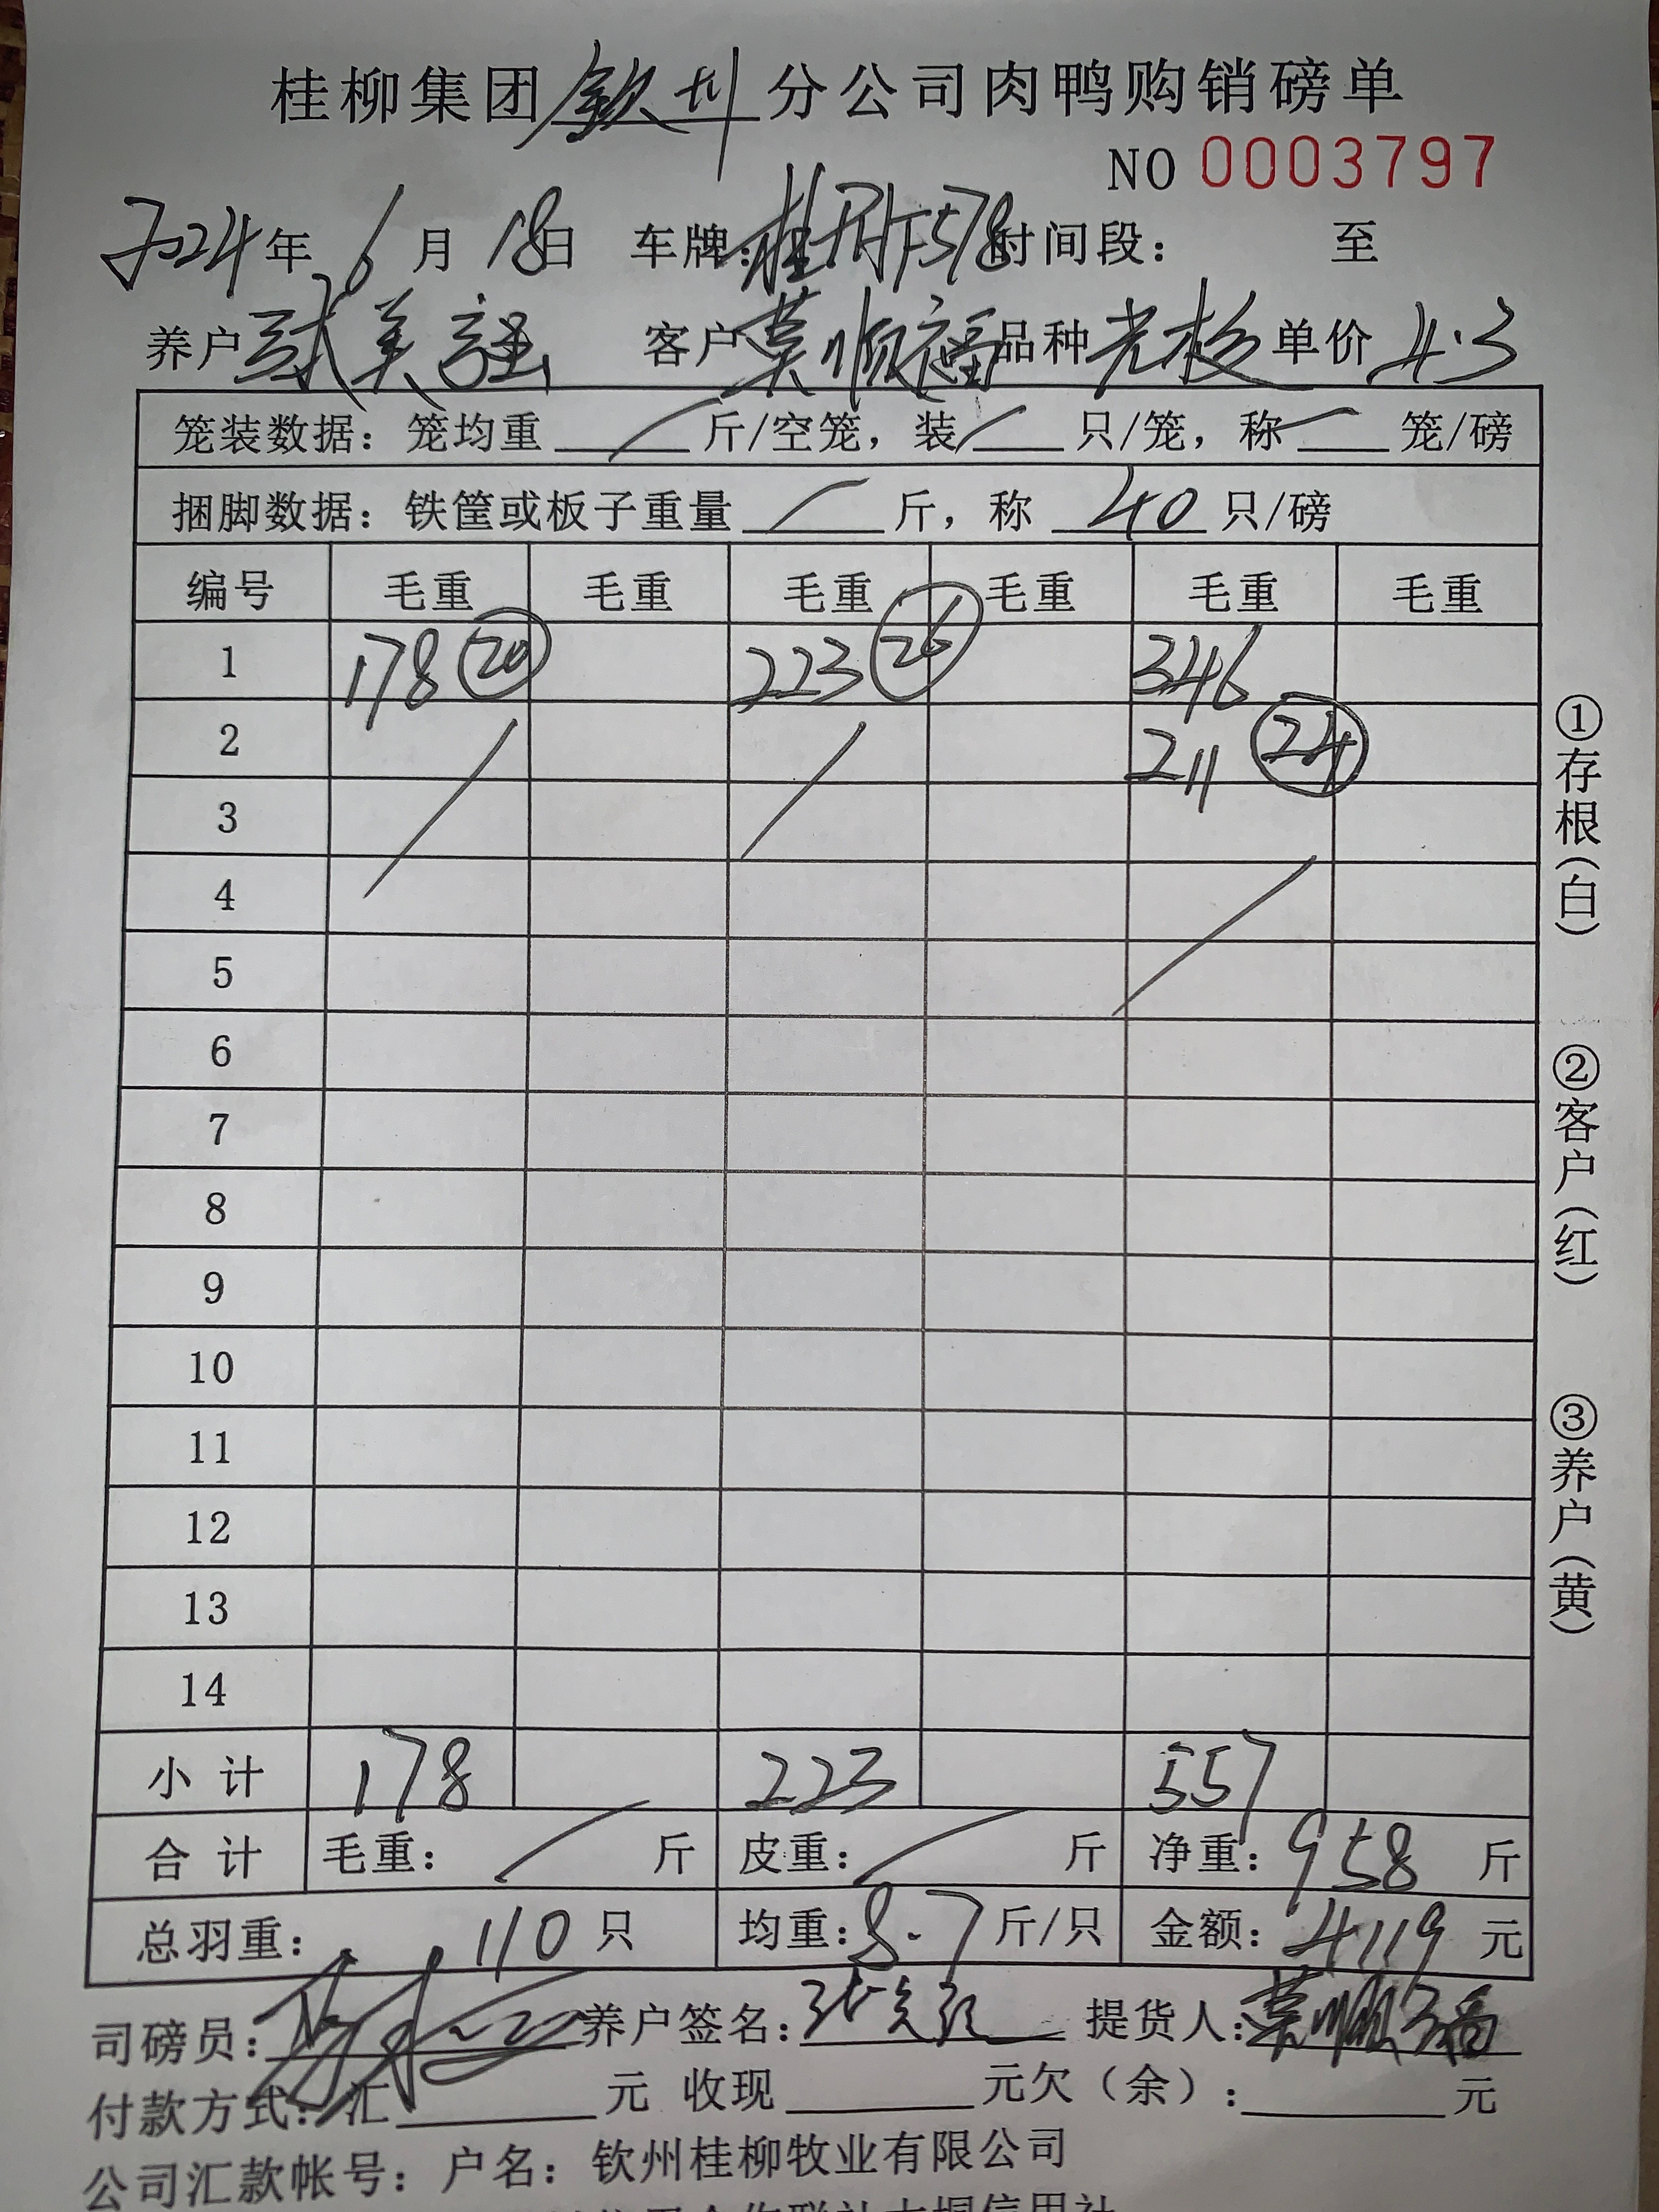 桂柳集团钦州分公司肉鸭购销磅单
NO 0003797
2024年 6月 18日 车牌: 桂 578 时间段: 至
养户 美强 客户 莫顺福 品种 单价 4.3
笼装数据: 笼均重 斤/空笼, 装 只/笼, 称 笼/磅
捆脚数据: 铁筐或板子重量 斤, 称 40 只/磅
编号 毛重 毛重 毛重 毛重 毛重 毛重
1 178 20 223 26 346
2 211 24
3
4
5
6
7
8
9
10
11
12
13
14
小计 178 223 557
合计 毛重: 斤 皮重: 斤 净重: 958 斤
总羽重: 110 只 均重: 8.7 斤/只 金额: 4119 元
司磅员: 养户签名: 提货人: 莫顺福
付款方式: 汇 元 收现 元欠(余): 元
公司汇款帐号: 户名: 钦州桂柳牧业有限公司
①存根(白)
②客户(红)
③养户(黄)